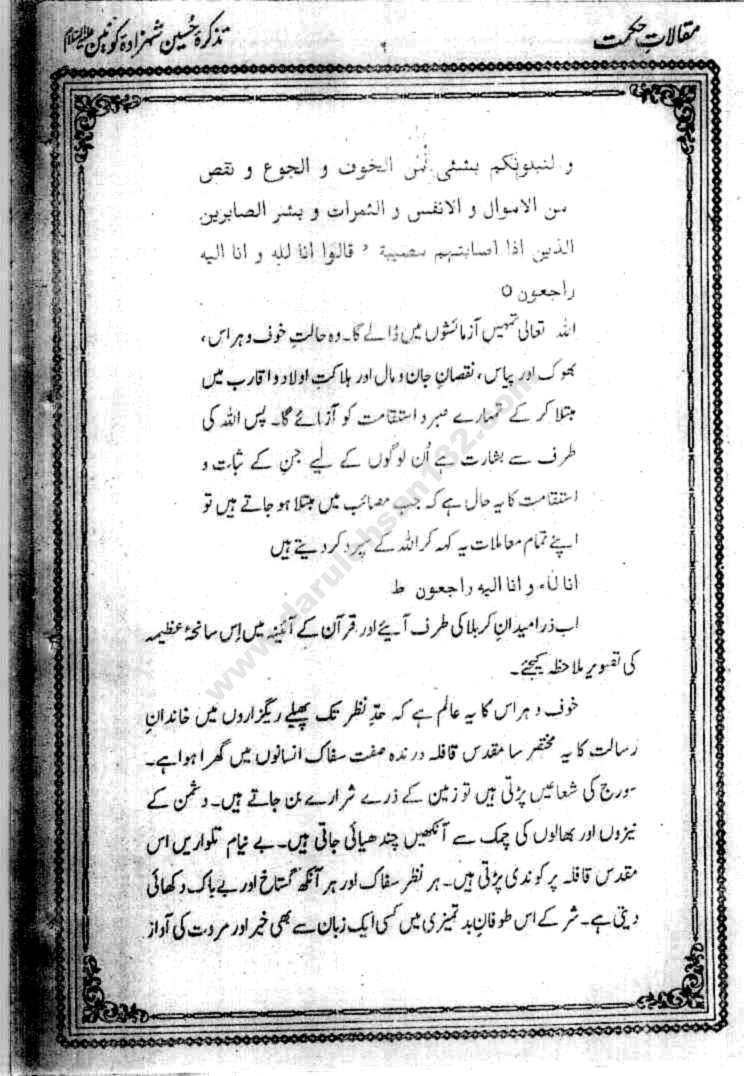 مقالاتِ حکمت
۲
تذکرۂ حُسین شہزادۂ کونین
و لنبلونكم بشئى من الخوف و الجوع و نقص
من الاموال و الانفس و الثمرات و بشر الصابرين
الذين اذا اصابتهم مصيبة ، قالوا انا لله و انا اليه
راجعون ٥
اللہ تعالیٰ تمہیں آزمائشوں میں ڈالے گا۔ وہ حالتِ خوف و ہراس،
بھوک اور پیاس، نقصانِ جان و مال اور ہلاکتِ اولاد و اقارب میں
مبتلا کر کے تمہارے صبر و استقامت کو آزمائے گا۔ پس اللہ کی
طرف سے بشارت ہے اُن لوگوں کے لیے جن کے ثبات و
استقامت کا یہ حال ہے کہ جب مصائب میں مبتلا ہو جاتے ہیں تو
اپنے تمام معاملات یہ کہہ کر اللہ کے سپرد کر دیتے ہیں
انا للہ و انا اليه راجعون ط
اب ذرا میدانِ کربلا کی طرف آیئے اور قرآن کے آئینہ میں اِس سانحۂ عظیمہ
کی تصویر ملاحظہ کیجئے۔
خوف و ہراس کا یہ عالم ہے کہ حدِّ نظر تک پھیلے ریگزاروں میں خاندانِ
رسالت کا یہ مختصر سا مقدس قافلہ درندہ صفت سفاک انسانوں میں گھرا ہوا ہے۔
سورج کی شعاعیں پڑتی ہیں تو زمین کے ذرے شرارے بن جاتے ہیں۔ دشمن کے
نیزوں اور بھالوں کی چمک سے آنکھیں چندھیائی جاتی ہیں۔ بے نیام تلواریں اس
مقدس قافلہ پر کوندی پڑتی ہیں۔ ہر نظر سفاک اور ہر آنکھ گستاخ اور بے باک دکھائی
دیتی ہے۔ شر کے اس طوفانِ بدتمیزی میں کسی ایک زبان سے بھی خیر اور مروت کی آواز
www.darulehsan182.com